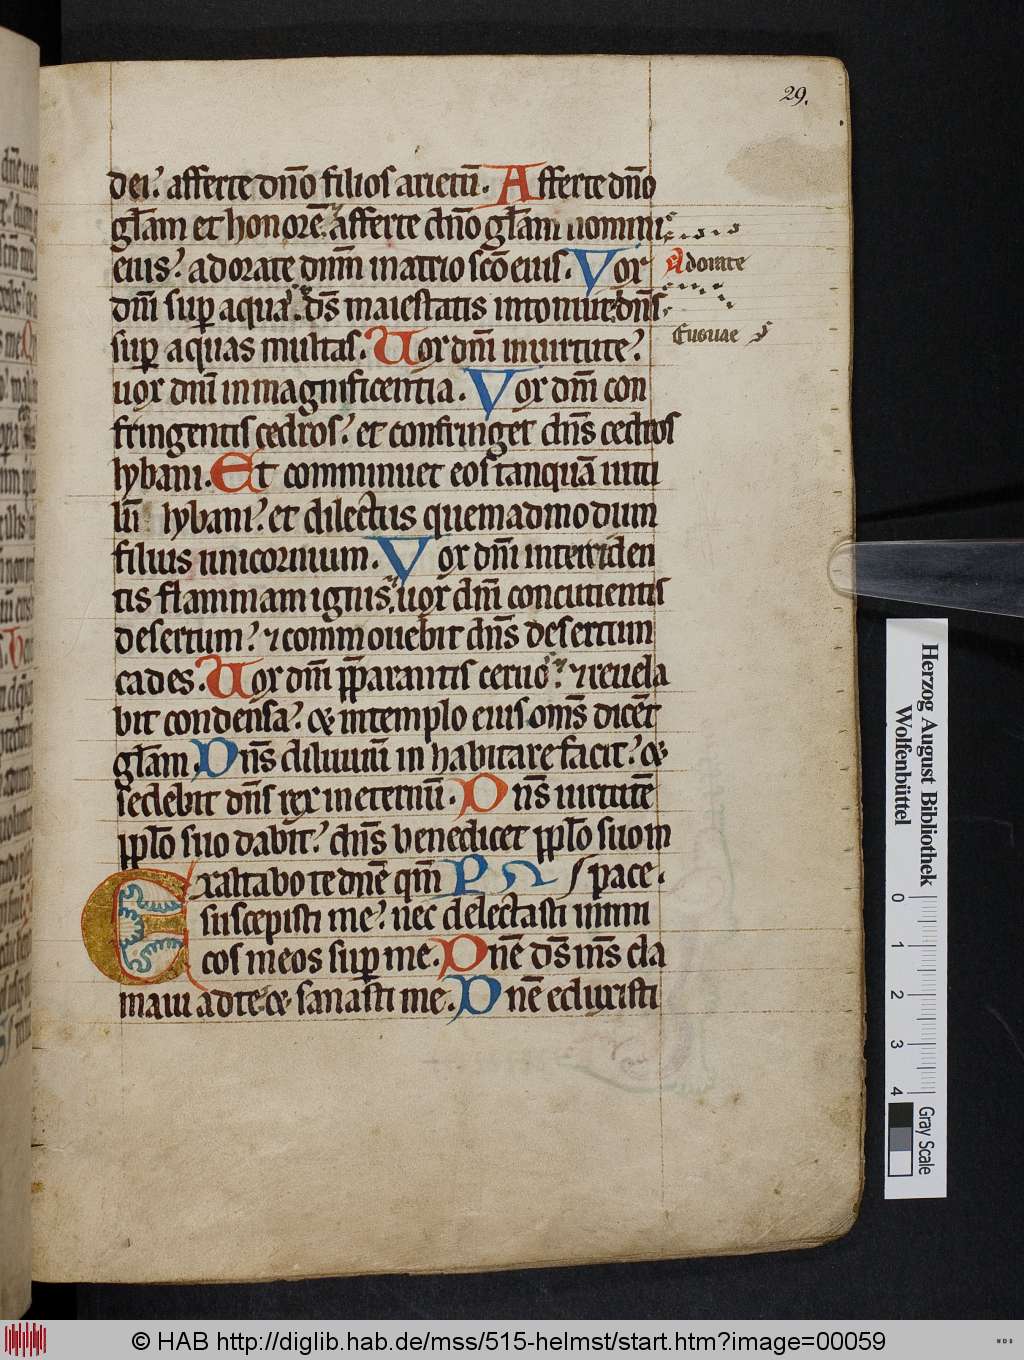 29.
dei? afferte dño filios arietũ. Afferte dño
gl̃am et honorẽ. afferte dño gl̃am nomini
eius? adorate dñm in atrio sc̃o eius. Vox
Adorate
dñi sup aquas. ds̃ maiestatis intonuit. dñs
sup aquas multas. Uox dñi in uirtute?
Euouae
uox dñi in magnificentia. Vox dñi con
fringentis cedros? et confringet dñs cedros
lybani. Et comminuet eos tanquã uitu
lũ lybani? et dilectus quemadmodum
filius unicornium. Vox dñi interciden
tis flammam ignis, uox dñi concutientis
desertum? ⁊ commouebit dñs desertum
cades. Uox dñi p̃parantis ceruos? ⁊ reuela
bit condensa? & in templo eius om̃s dicẽt
gl̃am. Dñs diluuiũ inhabitare facit? &
sedebit dñs rex in eternũ. Dñs uirtutẽ
pplo suo dabit? dñs benedicet pplo suo in
Exaltabo te dñe qm̃ PS pace.
suscepisti me? nec delectasti inimi
cos meos sup me. Dñe ds̃ ms̃ cla
maui ad te & sanasti me. Dñe eduxisti
Herzog August Bibliothek
Wolfenbüttel
0 1 2 3 4
Gray Scale
© HAB http://diglib.hab.de/mss/515-helmst/start.htm?image=00059